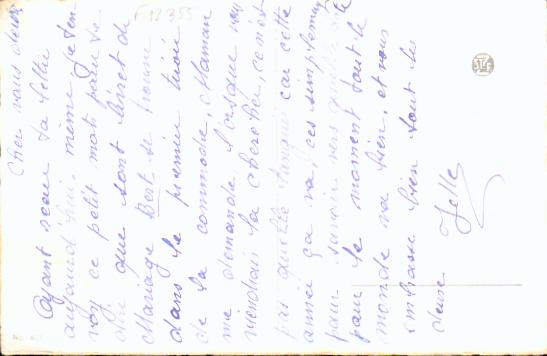 F12355
Cher vous deux
Ayant reçu ta lettre
aujourd'hui même, je t'en
voy ce petit mot pour te
dire que sont livret de
Mariage Bert se trouve
dans le premier tiroir
de la commode, Maman
me demande lorsque vous
viendrais la chercher, ce n'est
pas quelle languis car cette
année ça va, ces simplement
pour savoir
pour le moment tout le
monde va bien, et vous
embrasse bien tout les
deux